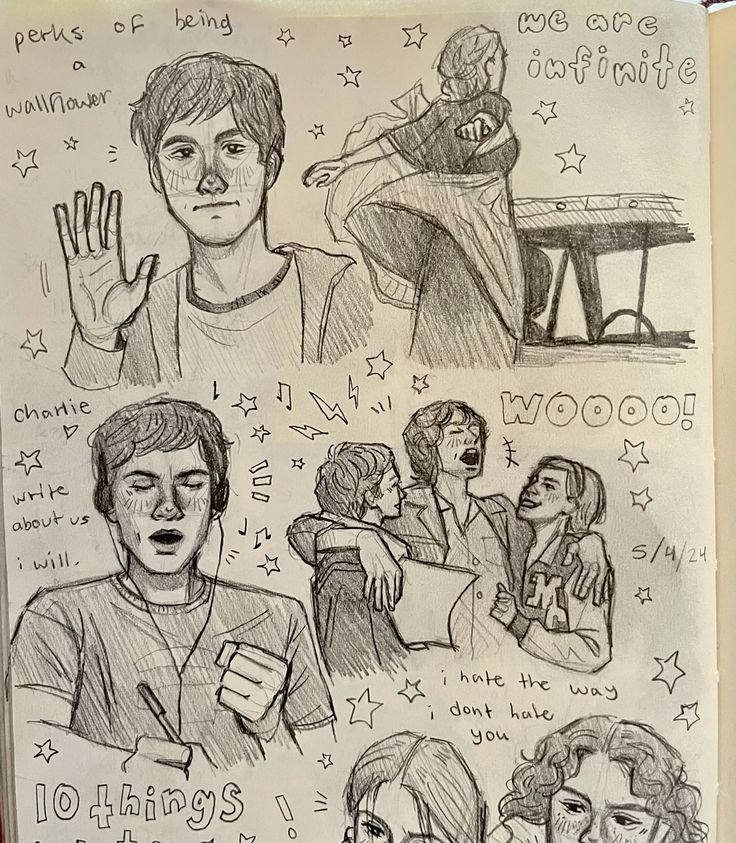 perks of being
a
wallflower
we are
infinite
charlie
write
about us
i will.
WOOOO!
M
5/4/24
i hate the way
i dont hate
you
10 things
!